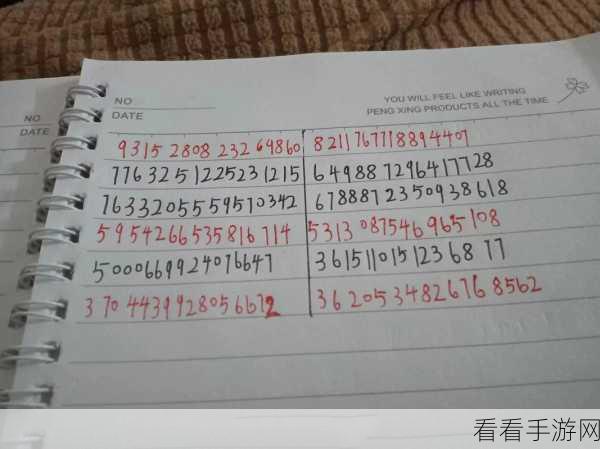 NO
DATE
NO
DATE
YOU WILL FEEL LIKE WRITING
PENG XING PRODUCTS ALL THE TIME
9315 2808 232 69860 8211767718894407
7763251225231215 649887296417728
7633205559570342 6788872350938618
5954266535816714 5313087546965108
5000669924076647 3615110151236877
3704439928056672 3620534826768562
看看手游网